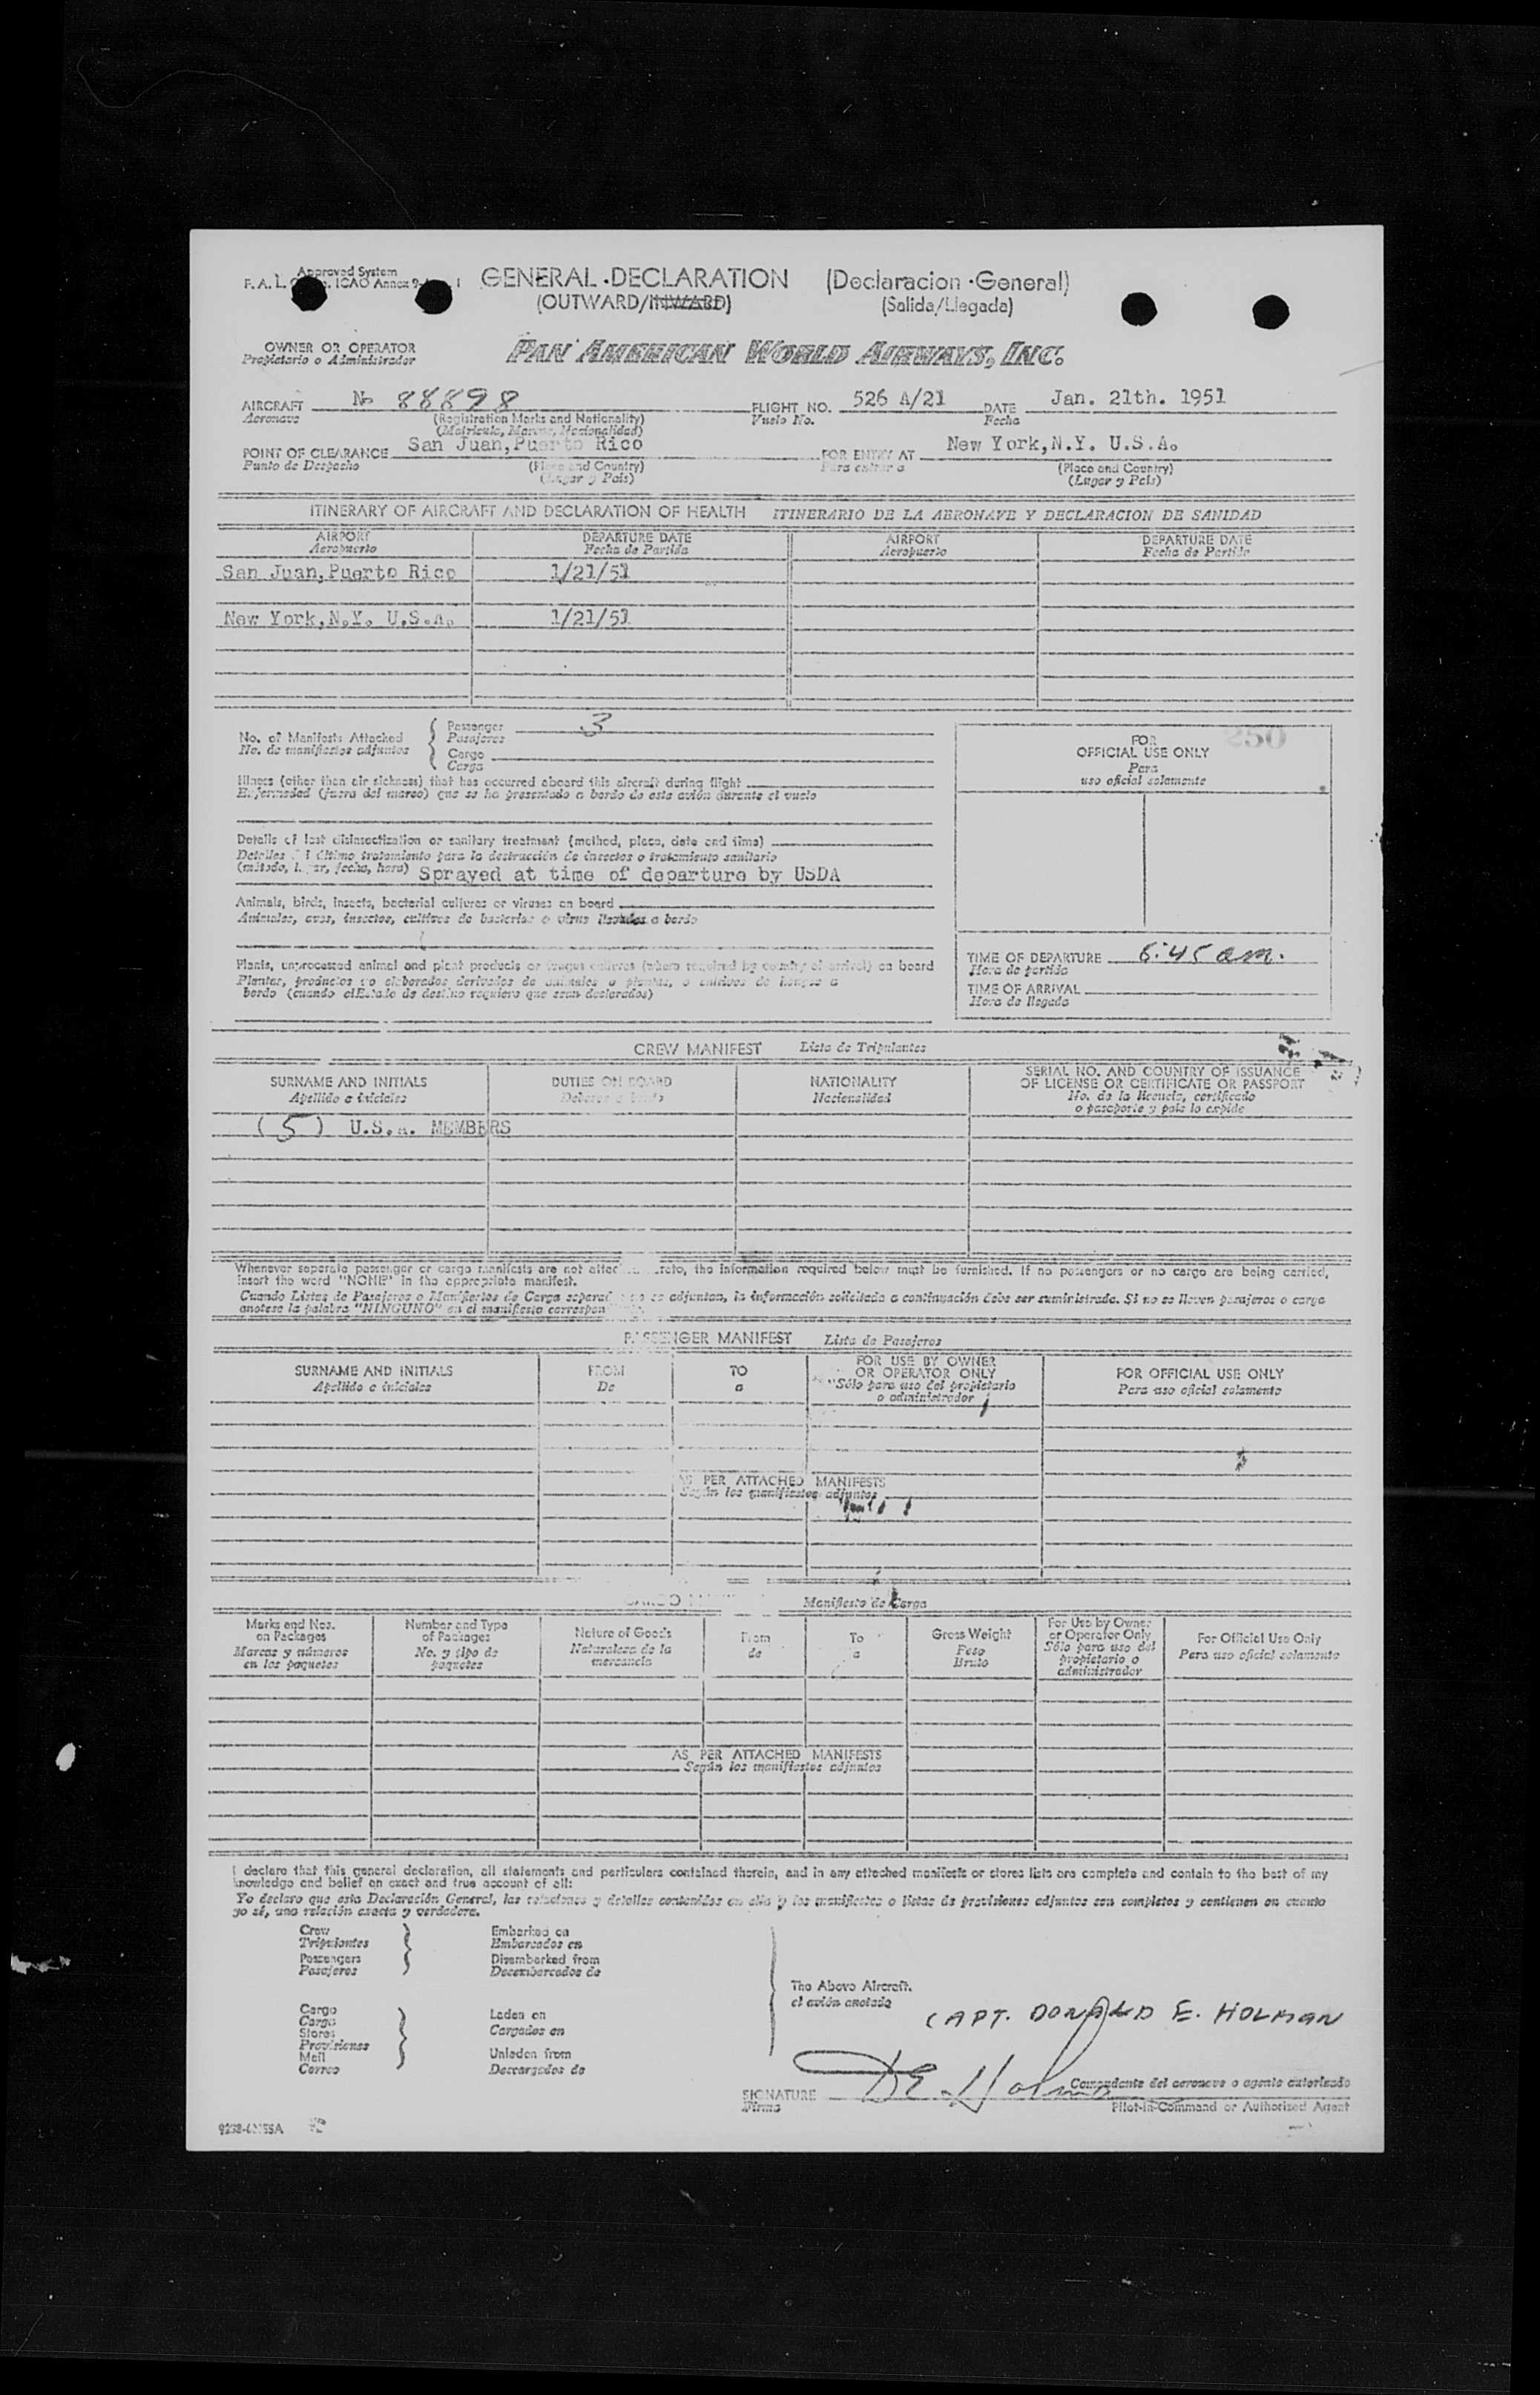 Approved System
F. A. L. ICAO Annex 9
GENERAL DECLARATION (Declaracion General)
(OUTWARD/INWARD) (Salida/Llegada)
OWNER OR OPERATOR
Propietario o Administrador
PAN AMERICAN WORLD AIRWAYS, INC.
AIRCRAFT No 88898 FLIGHT NO. 526 A/21 DATE Jan. 21th. 1951
Aeronave (Registration Marks and Nationality) Vuelo No. Fecha
(Matricula, Marcas, Nacionalidad)
POINT OF CLEARANCE San Juan,Puerto Rico FOR ENTRY AT New York,N.Y. U.S.A.
Punto de Despacho (Place and Country) Para entrar a (Place and Country)
(Lugar y Pais) (Lugar y Pais)
ITINERARY OF AIRCRAFT AND DECLARATION OF HEALTH ITINERARIO DE LA AERONAVE Y DECLARACION DE SANIDAD
AIRPORT DEPARTURE DATE AIRPORT DEPARTURE DATE
Aeropuerto Fecha de Partida Aeropuerto Fecha de Partida
San Juan,Puerto Rico 1/21/51
New York,N.Y. U.S.A. 1/21/51
No. of Manifests Attached
No. de manifiestos adjuntos
Passenger 3
Pasajeros
Cargo
Carga
250
FOR
OFFICIAL USE ONLY
Para
uso oficial solamente
Illness (other than air sickness) that has occurred aboard this aircraft during flight
Enfermedad (fuera del mareo) que se ha presentado a bordo de este avión durante el vuelo
Details of last disinsectization or sanitary treatment (method, place, date and time)
Detalles último tratamiento para la destrucción de insectos o tratamiento sanitario
(método, lugar, fecha, hora) Sprayed at time of departure by USDA
Animals, birds, insects, bacterial cultures or viruses on board
Animales, aves, insectos, cultivos de bacterias o virus llevados a bordo
Plants, unprocessed animal and plant products or fungus cultures (where required by country of arrival) on board
Plantas, productos no elaborados derivados de animales o plantas, o cultivos de hongos a
bordo (cuando el Estado de destino requiere que sean declarados)
TIME OF DEPARTURE 6:45 am.
Hora de partida
TIME OF ARRIVAL
Hora de llegada
CREW MANIFEST Lista de Tripulantes
SURNAME AND INITIALS DUTIES ON BOARD NATIONALITY SERIAL NO. AND COUNTRY OF ISSUANCE
OF LICENSE OR CERTIFICATE OR PASSPORT
Apellido e iniciales Deberes a bordo Nacionalidad No. de la licencia, certificado
o pasaporte y pais lo expide
(5) U.S.A. MEMBERS
Whenever separate passenger or cargo manifests are not attached hereto, the information required below must be furnished. If no passengers or no cargo are being carried,
insert the word "NONE" in the appropriate manifest.
Cuando Listas de Pasajeros o Manifiestos de Carga no se adjuntan, la información solicitada a continuación debe ser suministrada. Si no se llevan pasajeros o carga
anotese la palabra "NINGUNO" en el manifiesto
PASSENGER MANIFEST Lista de Pasajeros
SURNAME AND INITIALS FROM TO FOR USE BY OWNER
OR OPERATOR ONLY FOR OFFICIAL USE ONLY
Apellido e iniciales De a Sólo para uso del propietario
o administrador Para uso oficial solamente
AS PER ATTACHED MANIFESTS
Según los manifiestos adjuntos
CARGO Manifiesto de Carga
Marks and Nos. Number and Type Nature of Goods From To Gross Weight For Use by Owner For Official Use Only
on Packages of Packages or Operator Only
Marcas y números No. y tipo de Naturaleza de la de a Peso Sólo para uso del Para uso oficial solamente
en los paquetes paquetes mercancía Bruto propietario o
administrador
AS PER ATTACHED MANIFESTS
Según los manifiestos adjuntos
I declare that this general declaration, all statements and particulars contained therein, and in any attached manifests or stores lists are complete and contain to the best of my
knowledge and belief an exact and true account of all:
Yo declaro que esta Declaración General, las relaciones y detalles contenidos en ella y los manifiestos o listas de provisiones adjuntos son completos y contienen en cuanto
yo sé, una relación exacta y verdadera.
Crew Embarked on
Tripulantes Embarcados en
Passengers Disembarked from
Pasajeros Desembarcados de
The Above Aircraft.
el avión anotado
Cargo Laden on
Carga Cargados en
Stores
Provisiones
Mail Unladen from
Correo Descargados de
CAPT. DONALD E. HOLMAN
SIGNATURE DE Holman
Firma
Comandante del aeronave o agente autorizado
Pilot-in-Command or Authorized Agent